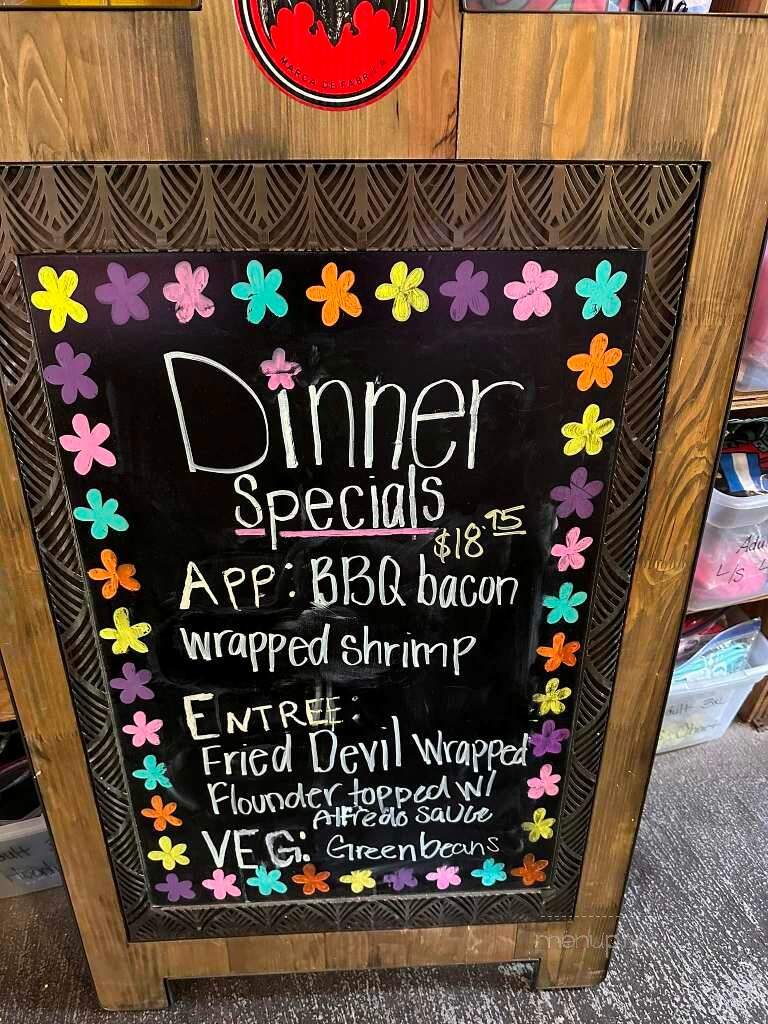 MARCA DE FABRICA
Dinner
Specials
$18.95
APP: BBQ bacon
wrapped shrimp
ENTREE:
Fried Devil Wrapped
Flounder topped W/
Alfredo sauce
VEG: Greenbeans
L/S